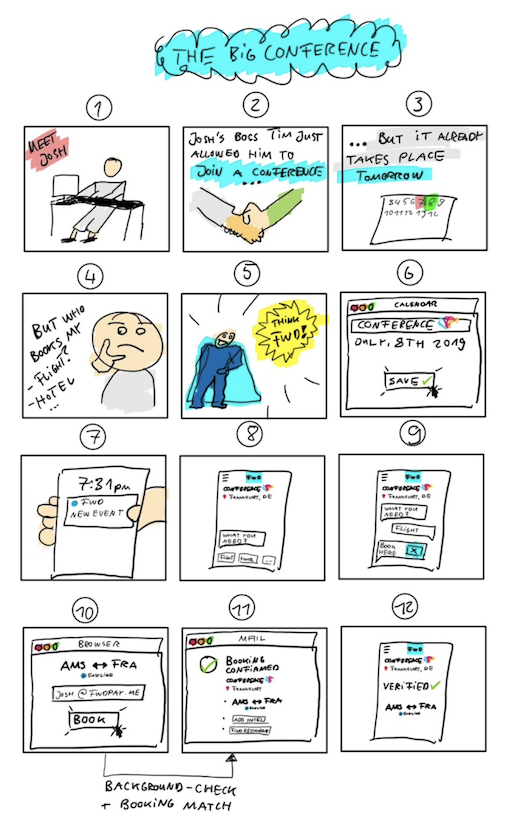 THE BIG CONFERENCE
1
MEET
JOSH
2
JOSH'S BOSS TIM JUST
ALLOWED HIM TO
JOIN A CONFERENCE
...
3
... BUT IT ALREADY
TAKES PLACE
TOMORROW
3 4 5 6 7 8 9
10 11 12 13 14
4
BUT WHO
BOOKS MY
- FLIGHT?
- HOTEL
...
5
THINK
FWD!
6
CALENDAR
CONFERENCE
8TH 2019
SAVE
7
7:31pm
FWD
NEW EVENT
8
FWD
CONFERENCE
FRANKFURT, DE
WHAT YOU
NEED?
FLIGHT
HOTEL
...
9
FWD
CONFERENCE
FRANKFURT, DE
WHAT YOU
NEED?
FLIGHT
BOOK
HERE
10
BROWSER
AMS ↔ FRA
JOSH@FWDPAY.ME
BOOK
11
MAIL
BOOKING
CONFIRMED
CONFERENCE
FRANKFURT, DE
• AMS ↔ FRA
• ADD HOTEL
• FIND RESTAURANT
12
FWD
CONFERENCE
FRANKFURT, DE
VERIFIED
AMS ↔ FRA
BACKGROUND-CHECK
+ BOOKING MATCH